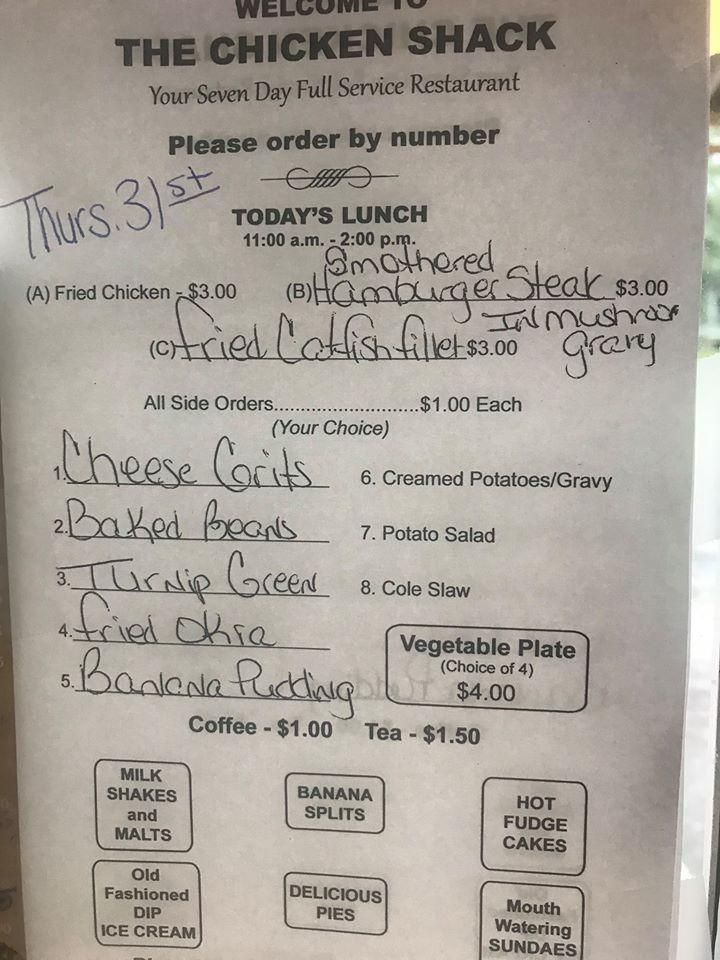 WELCOME TO
THE CHICKEN SHACK
Your Seven Day Full Service Restaurant
Please order by number
Thurs. 31st
TODAY'S LUNCH
11:00 a.m. - 2:00 p.m.
(A) Fried Chicken - $3.00
(B) Smothered Hamburger Steak $3.00
In Mushroom gravy
(C) fried Catfish fillet $3.00
All Side Orders............................$1.00 Each
(Your Choice)
1. Cheese Grits
6. Creamed Potatoes/Gravy
2. Baked Beans
7. Potato Salad
3. Turnip Green
8. Cole Slaw
4. fried Okra
5. Banana Pudding
Vegetable Plate
(Choice of 4)
$4.00
Coffee - $1.00 Tea - $1.50
MILK
SHAKES
and
MALTS
BANANA
SPLITS
HOT
FUDGE
CAKES
Old
Fashioned
DIP
ICE CREAM
DELICIOUS
PIES
Mouth
Watering
SUNDAES